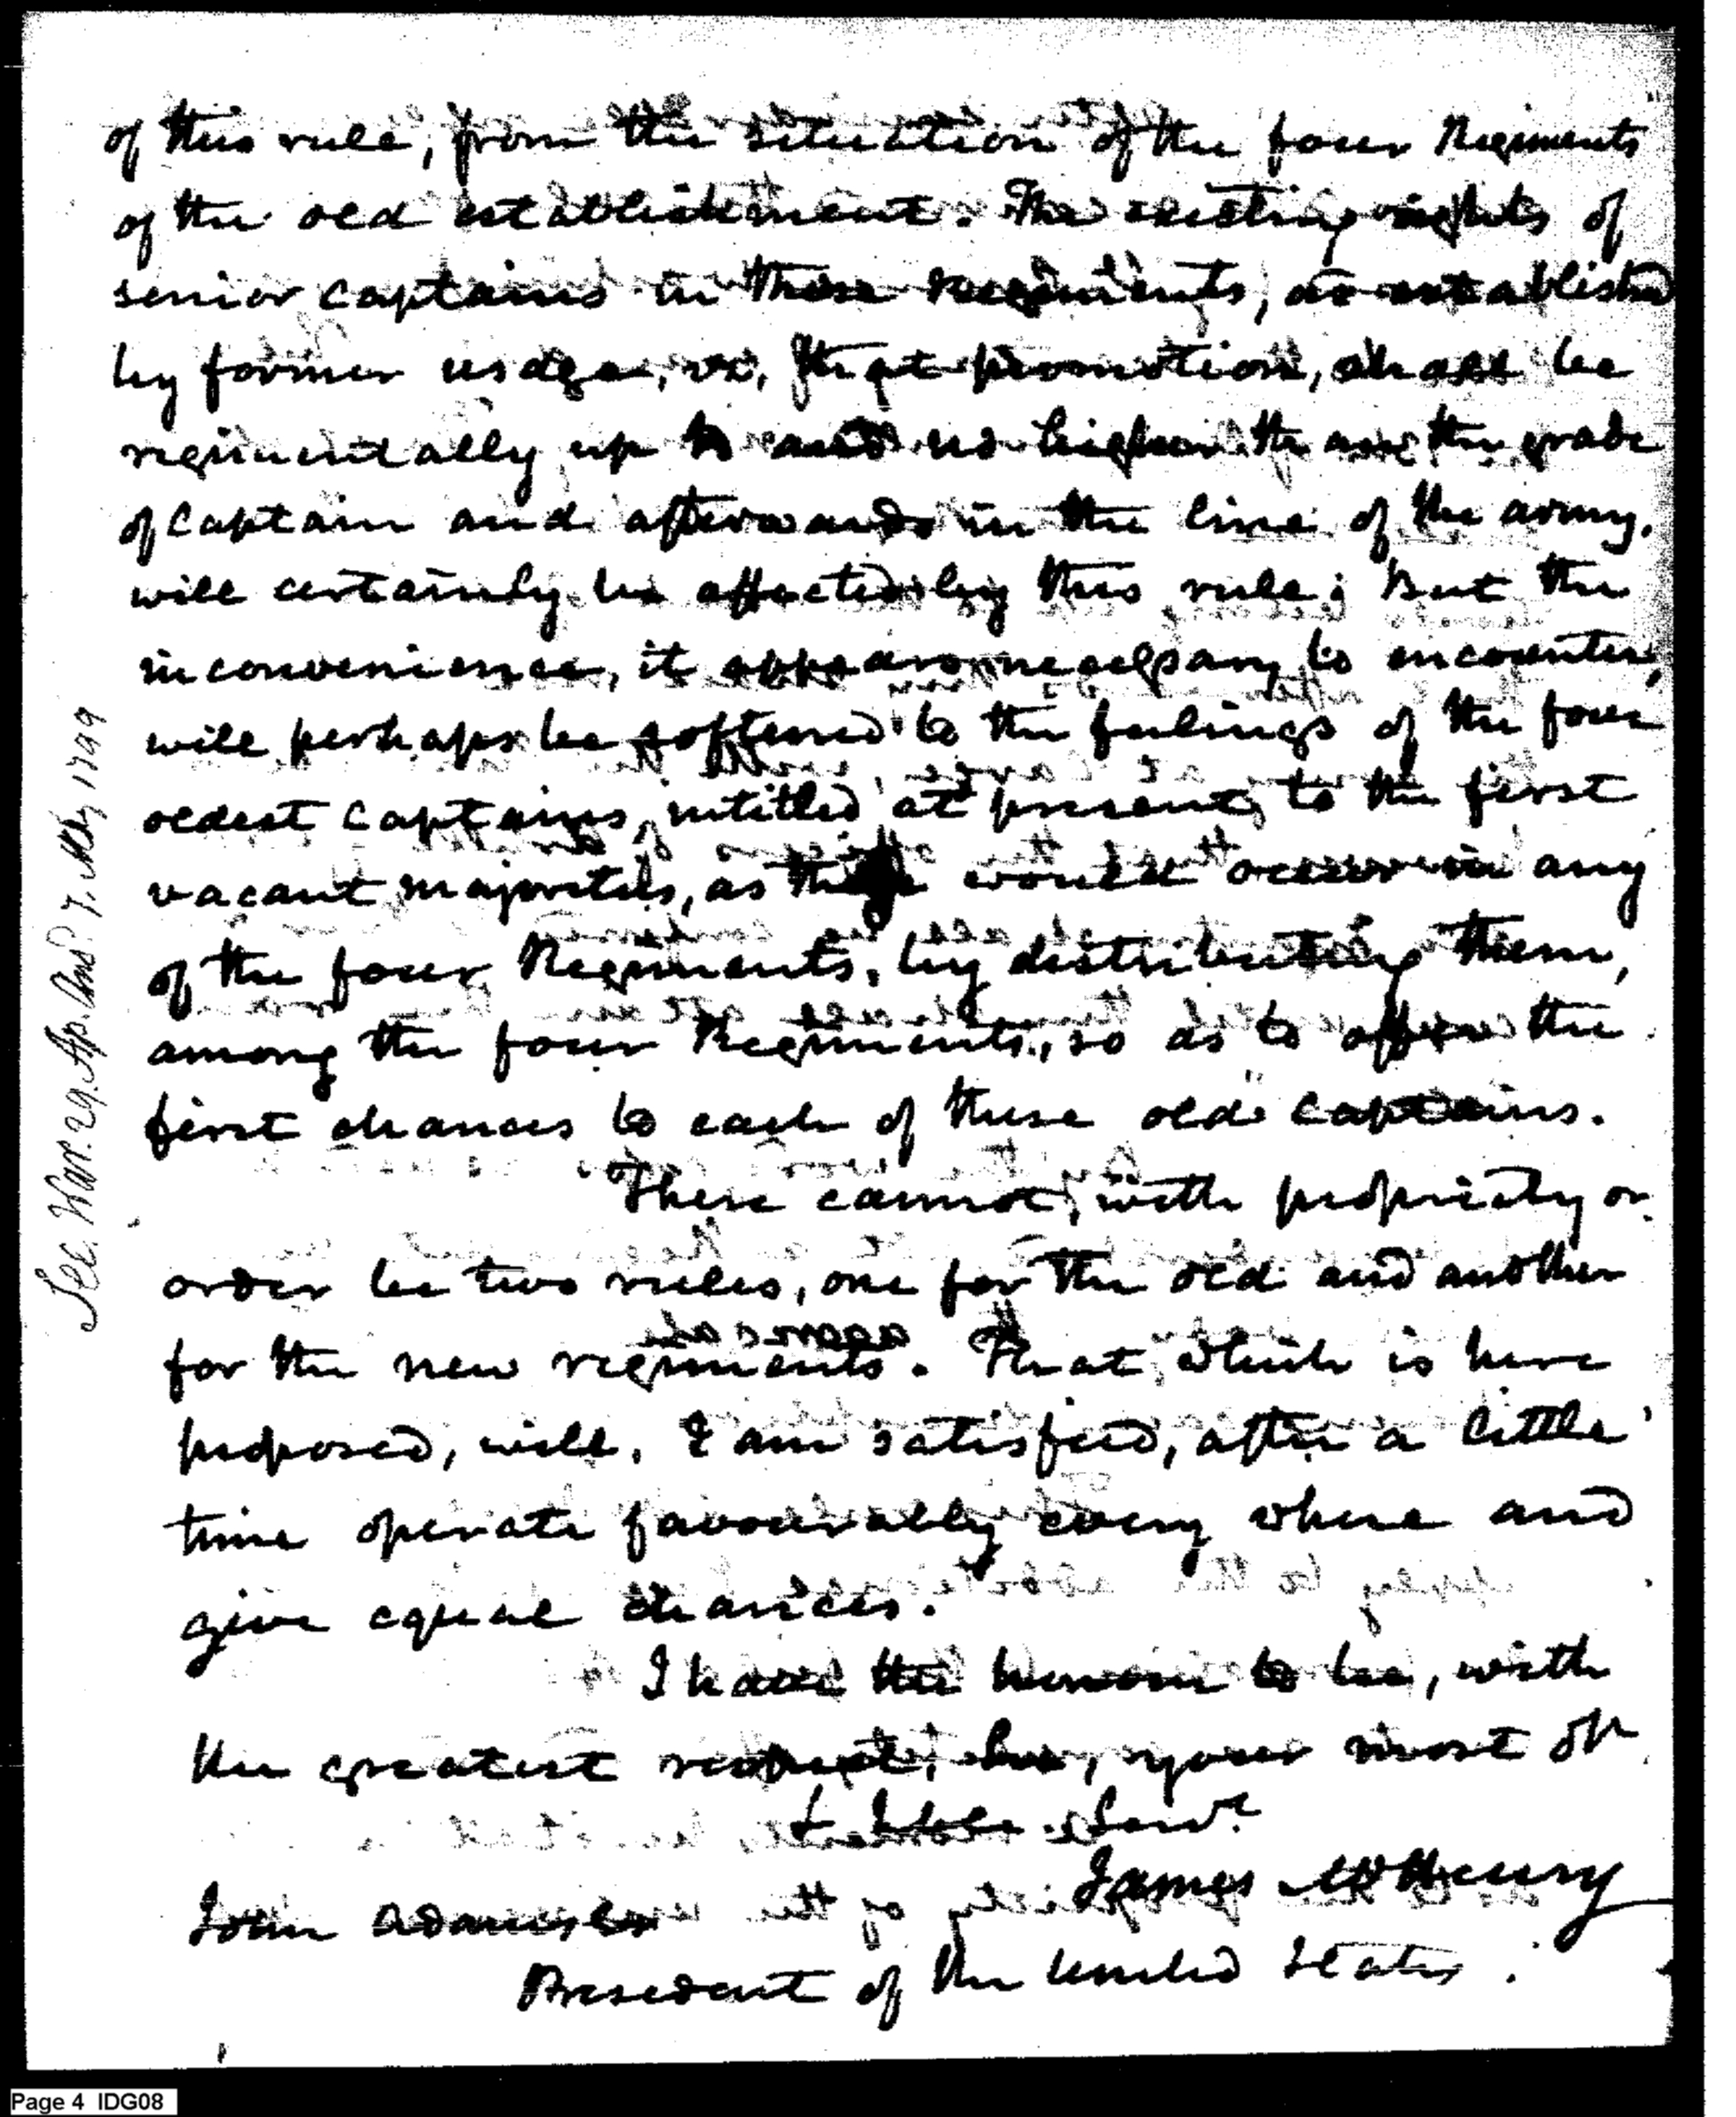 of this rule, from the situation of the four Regiments
of the old establishment. The existing rights of
senior captains in those Regiments, as established
by former usage, viz. that promotion, shall be
regimentally up to and no higher than the grade
of Captain and afterwards in the line of the army.
will certainly be affected by this rule; But the
inconvenience, it appears necessary to encounter,
will perhaps be softened to the feelings of the four
oldest Captains, intitled at present, to the first
vacant majorities, as they would occur in any
of the four Regiments, by distributing them,
among the four Regiments, so as to offer the
first chances to each of these old captains.
There cannot, with propriety or
order be two rules, one for the old and another
for the new regiments. That, which is here
proposed, will, I am satisfied, after a little
time operate favourably every where and
give equal chances.
I have the honour to be, with
the greatest respect, Sir, your most ob
& Hble. Servt
James McHenry
John Adams
President of the United States.
Sec. War. 29. Ap. Ansd 7. May 1799
Page 4 IDG08